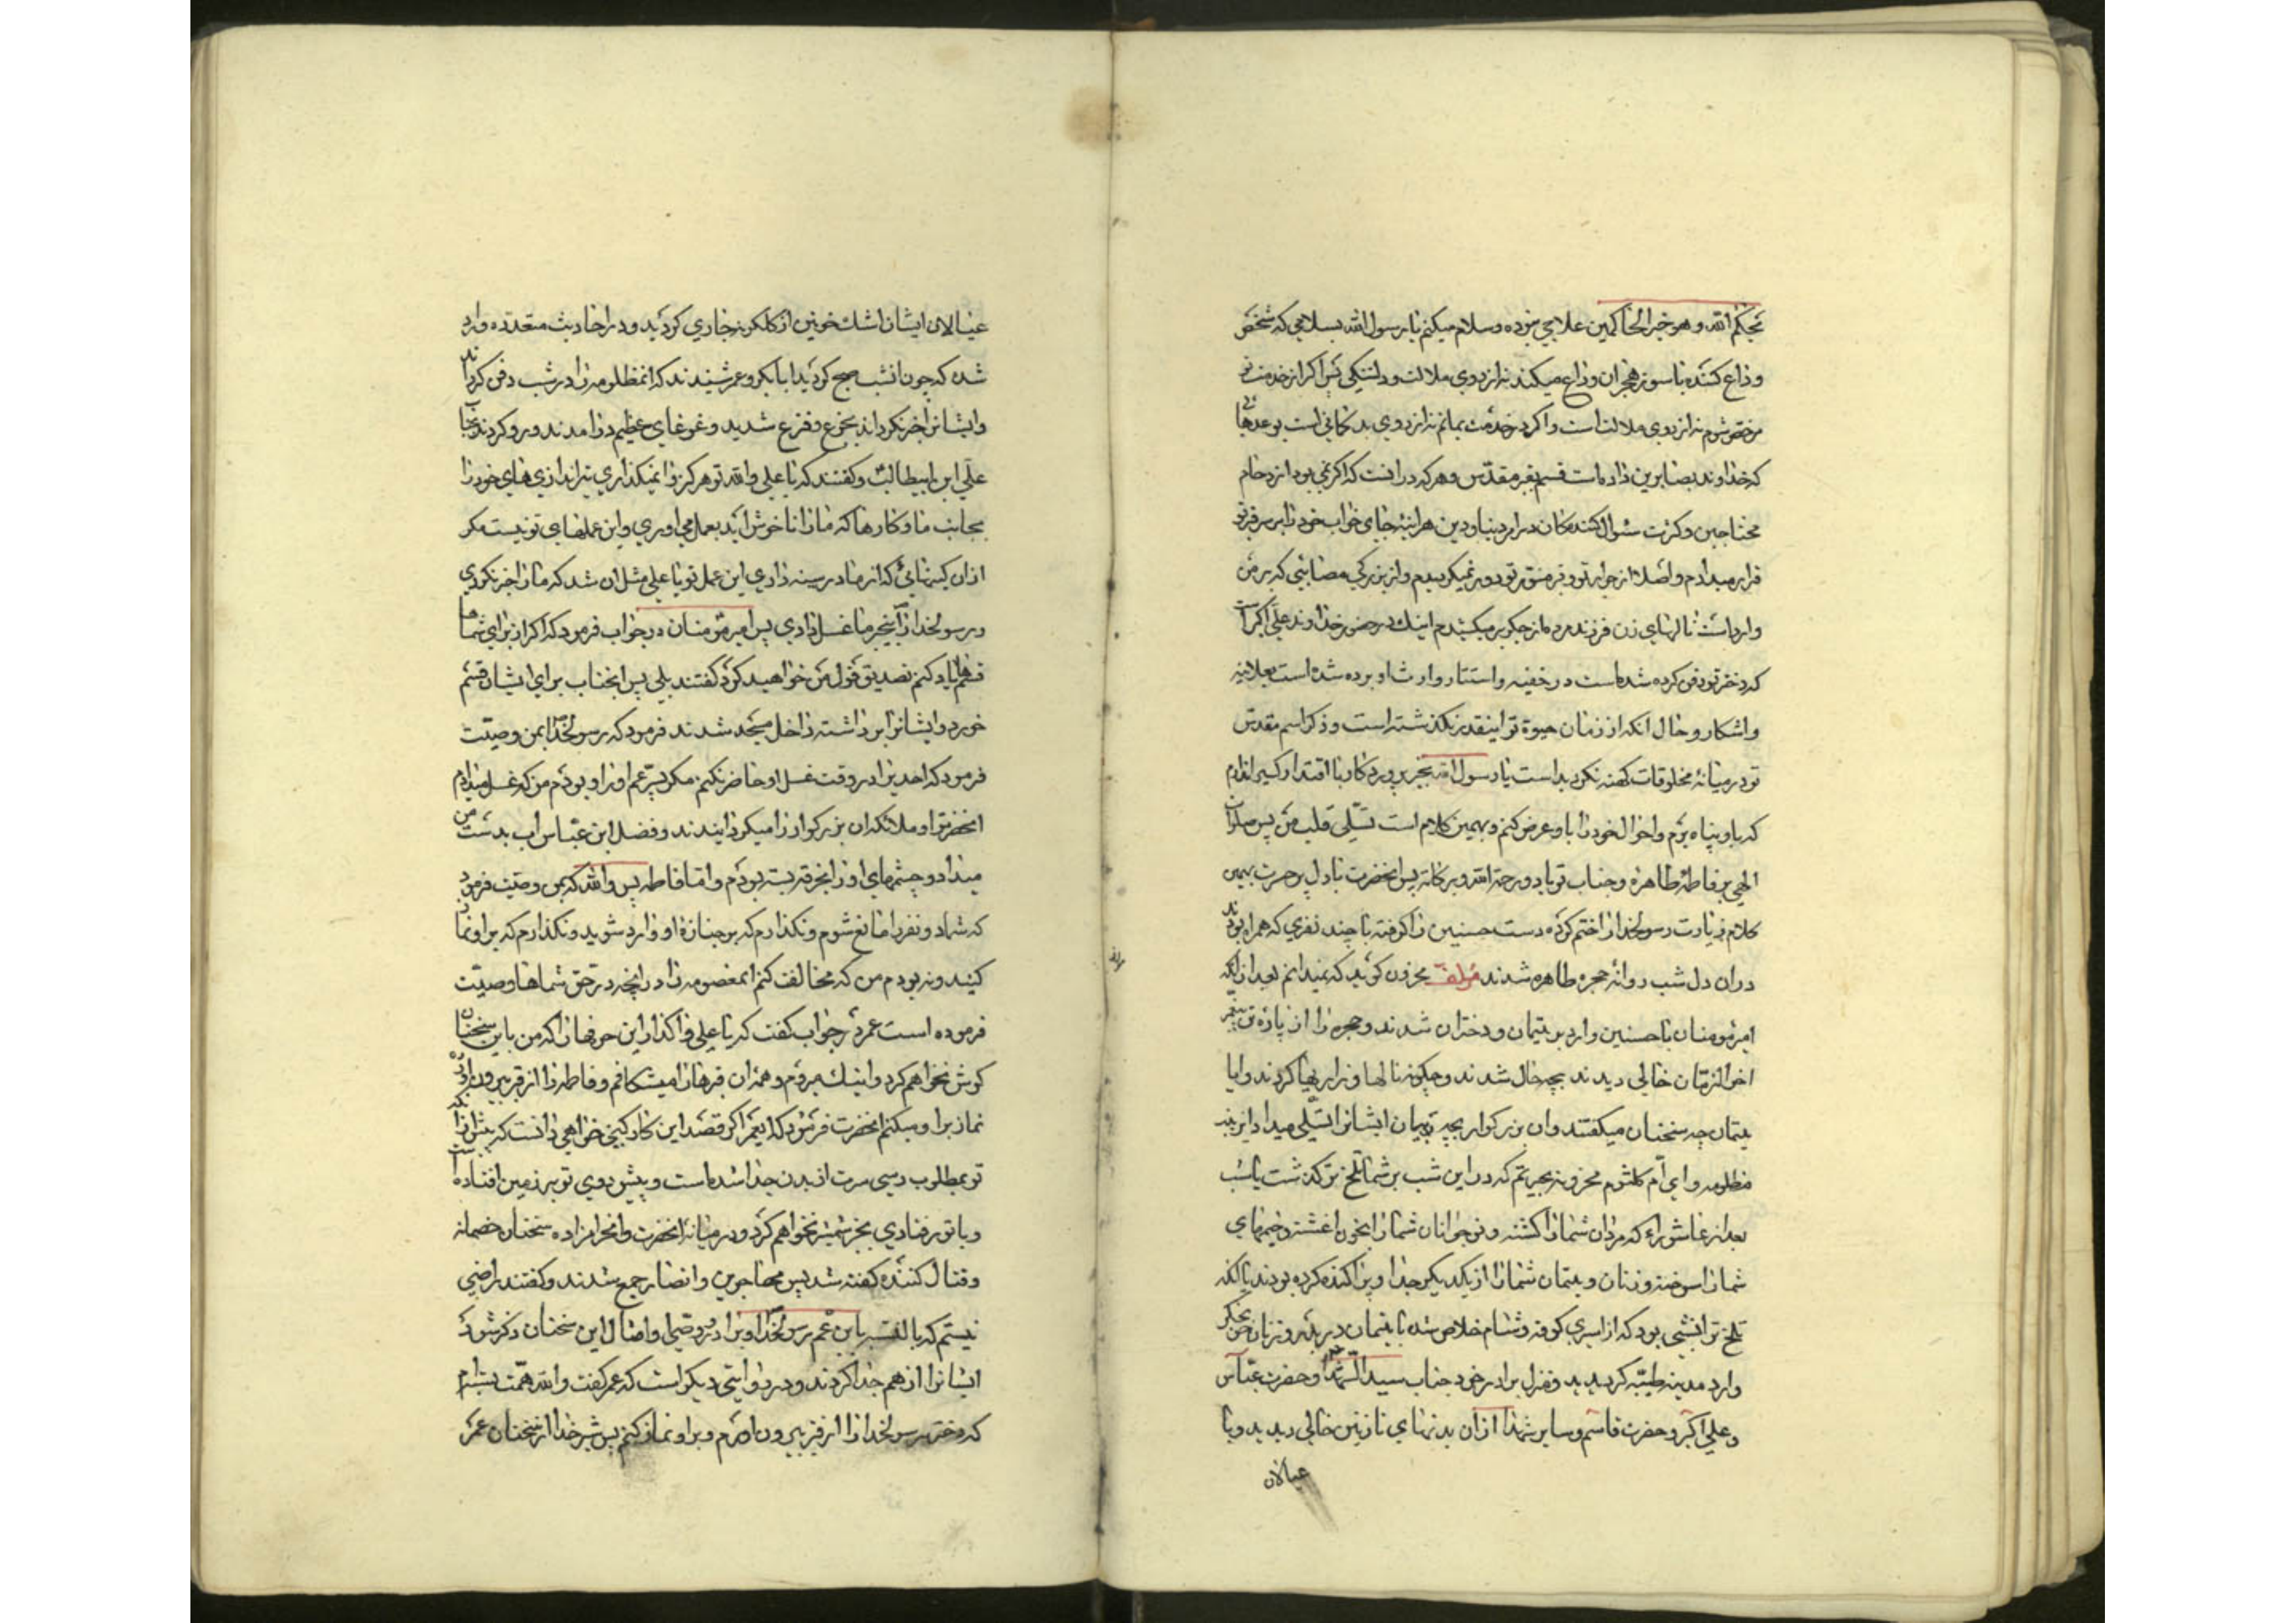 یحکم الله و هو خیر الحاکمین علاجی نبوده و سلام میکنم یا رسول الله بسلامی که شخص
وداع کننده با سوز هجران وداع میکند نه از روی ملالت و دلتنکی پس اکر از خدمت تو
مرخص شوم نه از روی ملالت است و اکر در خدمت بمانم نه از روی بد کمانی است بوعدهائی
که خداوند بصابرین داده است قسم بقبر مقدس و هر که در اوست که اکر نمی بود ازدحام
محتاجین و کثرت سئوال کنندکان در امر دنیا و دین هر اینه جای خواب خود را بر سر قبر تو
قرار میدادم و اصلا از جوار تو و قبر منور تو دور نمیکردیدم و از بزرکی مصایبی که بر من
وارد است نالهای زن فرزند مرده از جکر بر میکشیدم اینک در حضور خداوند علی اکبر است
که دختر تو دفن کرده شده است در خفیه و استتار و ارث او برده شده است بعلانیه
و اشکار و حال انکه از زمان حیوة تو اینقدر نکذشته است و ذکر اسم مقدس
تو در میانهٔ مخلوقات کهنه نکردیده است یا رسول الله بجز پروردکار با اقتدار کسی را ندارم
که باو پناه برم و احوال خود را باو عرض کنم و بهمین کلام است تسلی قلب من پس صلوات
الهی بر فاطمهٔ طاهره و جناب تو باد و رحمة الله و برکاته پس انحضرت با دل پر حسرت بهمین
کلام زیارت رسولخدا را ختم کرده دست حسنین را کرفته با چند نفری که همراه بودند
در ان دل شب روانهٔ حجره طاهره شدند مؤلف محزون کوید که نمیدانم بعد از انکه
امیر مؤمنان با حسنین وارد بر یتیمان و دختران شدند و حجره را از پارهٔ تن پیغمبر
اخر الزمان خالی دیدند بچه حال شدند و چکونه نالها و زاریها کردند و ایا
یتیمان چه سخنان میکفتند و ان بزرکوار بچه زبان ایشانرا تسلی میداد ای زینب
مظلومه و ای ام کلثوم محزونه بحیرتم که در این شب بر شما تلخ تر کذشت یا شب
بعد از عاشوراء که مردان شما را کشته و نوجوانان شما را بخون اغشته و خیمهای
شما را سوخته و زنان و یتیمان شما را از یکدیکر جدا و پراکنده کرده بودند یا انکه
تلخ تر ان شبی بود که از اسیری کوفه و شام خلاص شده با یتیمان در بدر و زنان خون جکر
وارد مدینه طیبه کردیدید و منزل برادر خود جناب سید الشهداء و حضرت عباس
و علی اکبر و حضرت قاسم و سایر شهدا را از ان بدنهای نازنین خالی دیدید و با
عیالان
عیالان ایشان اشک خونین از کلکونه جاری کردید و در احادیث متعدده وارد
شده که چون انشب صبح کردید ابابکر و عمر شنیدند که انمظلومه را در شب دفن کردند
و ایشانرا خبر نکرده اند بجزع و فزع شدید و غوغای عظیم در امدند و رو کردند بجناب
علی ابن ابیطالب و کفتند که یا علی والله تو هرکز وا نمیکذاری تیر اندازی های خود را
بجانب ما و کارها که ما را ناخوش اید بعمل می اوری و این عملهای تو نیست مکر
از ان کینهائی که از ما در سینه داری این عمل تو یا علی مثل ان شد که ما را خبر نکردی
و رسولخدا را بیخبر ما غسل دادی پس امیر مؤمنان در جواب فرمود که اکر از برای شماها
قسم یاد کنم تصدیق قول من خواهید کرد کفتند بلی پس انجناب برای ایشان قسم
خورد و ایشانرا برداشته داخل مسجد شدند فرمود که رسولخدا بمن وصیت
فرمود که احدیرا در وقت غسل او حاضر نکنم مکر پسر عم او را و بودم من که غسل میدادم
انحضرت و ملائکه ان بزرکوار را میکردانیدند و فضل ابن عباس اب بدست من
میداد و چشمهای او را بخرقه بسته بودم و اما فاطمه پس والله که بمن وصیت فرمود
که شما دو نفر را مانع شوم و نکذارم که بر جنازهٔ او وارد شوید و نکذارم که بر او نماز
کنید و نه بودم من که مخالفت کنم انمعصومه را در انچه در حق شماها وصیت
فرموده است عمر در جواب کفت که یا علی واکذار این حرفها را که من باین سخنان
کوش نخواهم کرد و اینک میروم و همه ان قبرها را میشکافم و فاطمه را از قبر بیرون اورده
نماز بر او میکنم انحضرت فرمود که ایعمر اکر قصد این کار کنی خواهی دانست که پیش از انکه
تو بمطلوب رسی سرت از بدن جدا شده است و پیش روی تو بر زمین افتاده است
و با تو رفتاری بجز شمشیر نخواهم کرد و در میانهٔ انحضرت و انحرامزاده سخنان خصمانه
و قتال کننده کفته شد پس مهاجرین و انصار جمع شدند و کفتند راضی
نیستم که بالنسبه باین عم رسولخدا و برادر و وصی او امثال این سخنان ذکر شود
ایشانرا از هم جدا کردند و در روایتی دیکر است که عمر کفت والله همت بسته ام
که دختر رسولخدا را از قبر بیرون اورم و بر او نماز کنم پس شیر خدا از سخنان عمر